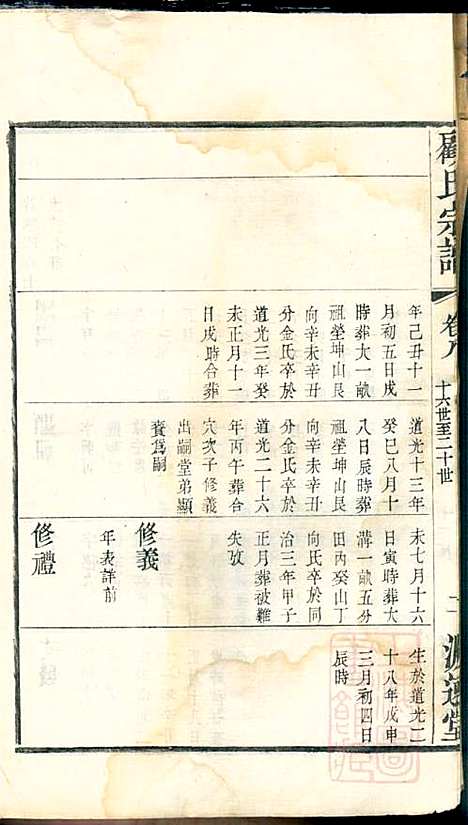 顧氏宗譜
卷八
十六世至二十世
源遠堂
年己丑十一
月初五日戌
時葬大一畝
祖塋坤山艮
向辛未辛丑
分金氏卒於
道光三年癸
未正月十一
日戌時合葬
道光十三年
癸巳八月十
八日辰時葬
祖塋坤山艮
向辛未辛丑
分金氏卒於
道光二十六
年丙午葬合
穴次子修義
出嗣堂弟顯
賚爲嗣
未七月十六
日寅時葬大
溝一畝五分
田內癸山丁
向氏卒於同
治三年甲子
正月葬被難
失攷
修義
年表詳前
修禮
生於道光二
十八年戊申
三月初四日
辰時